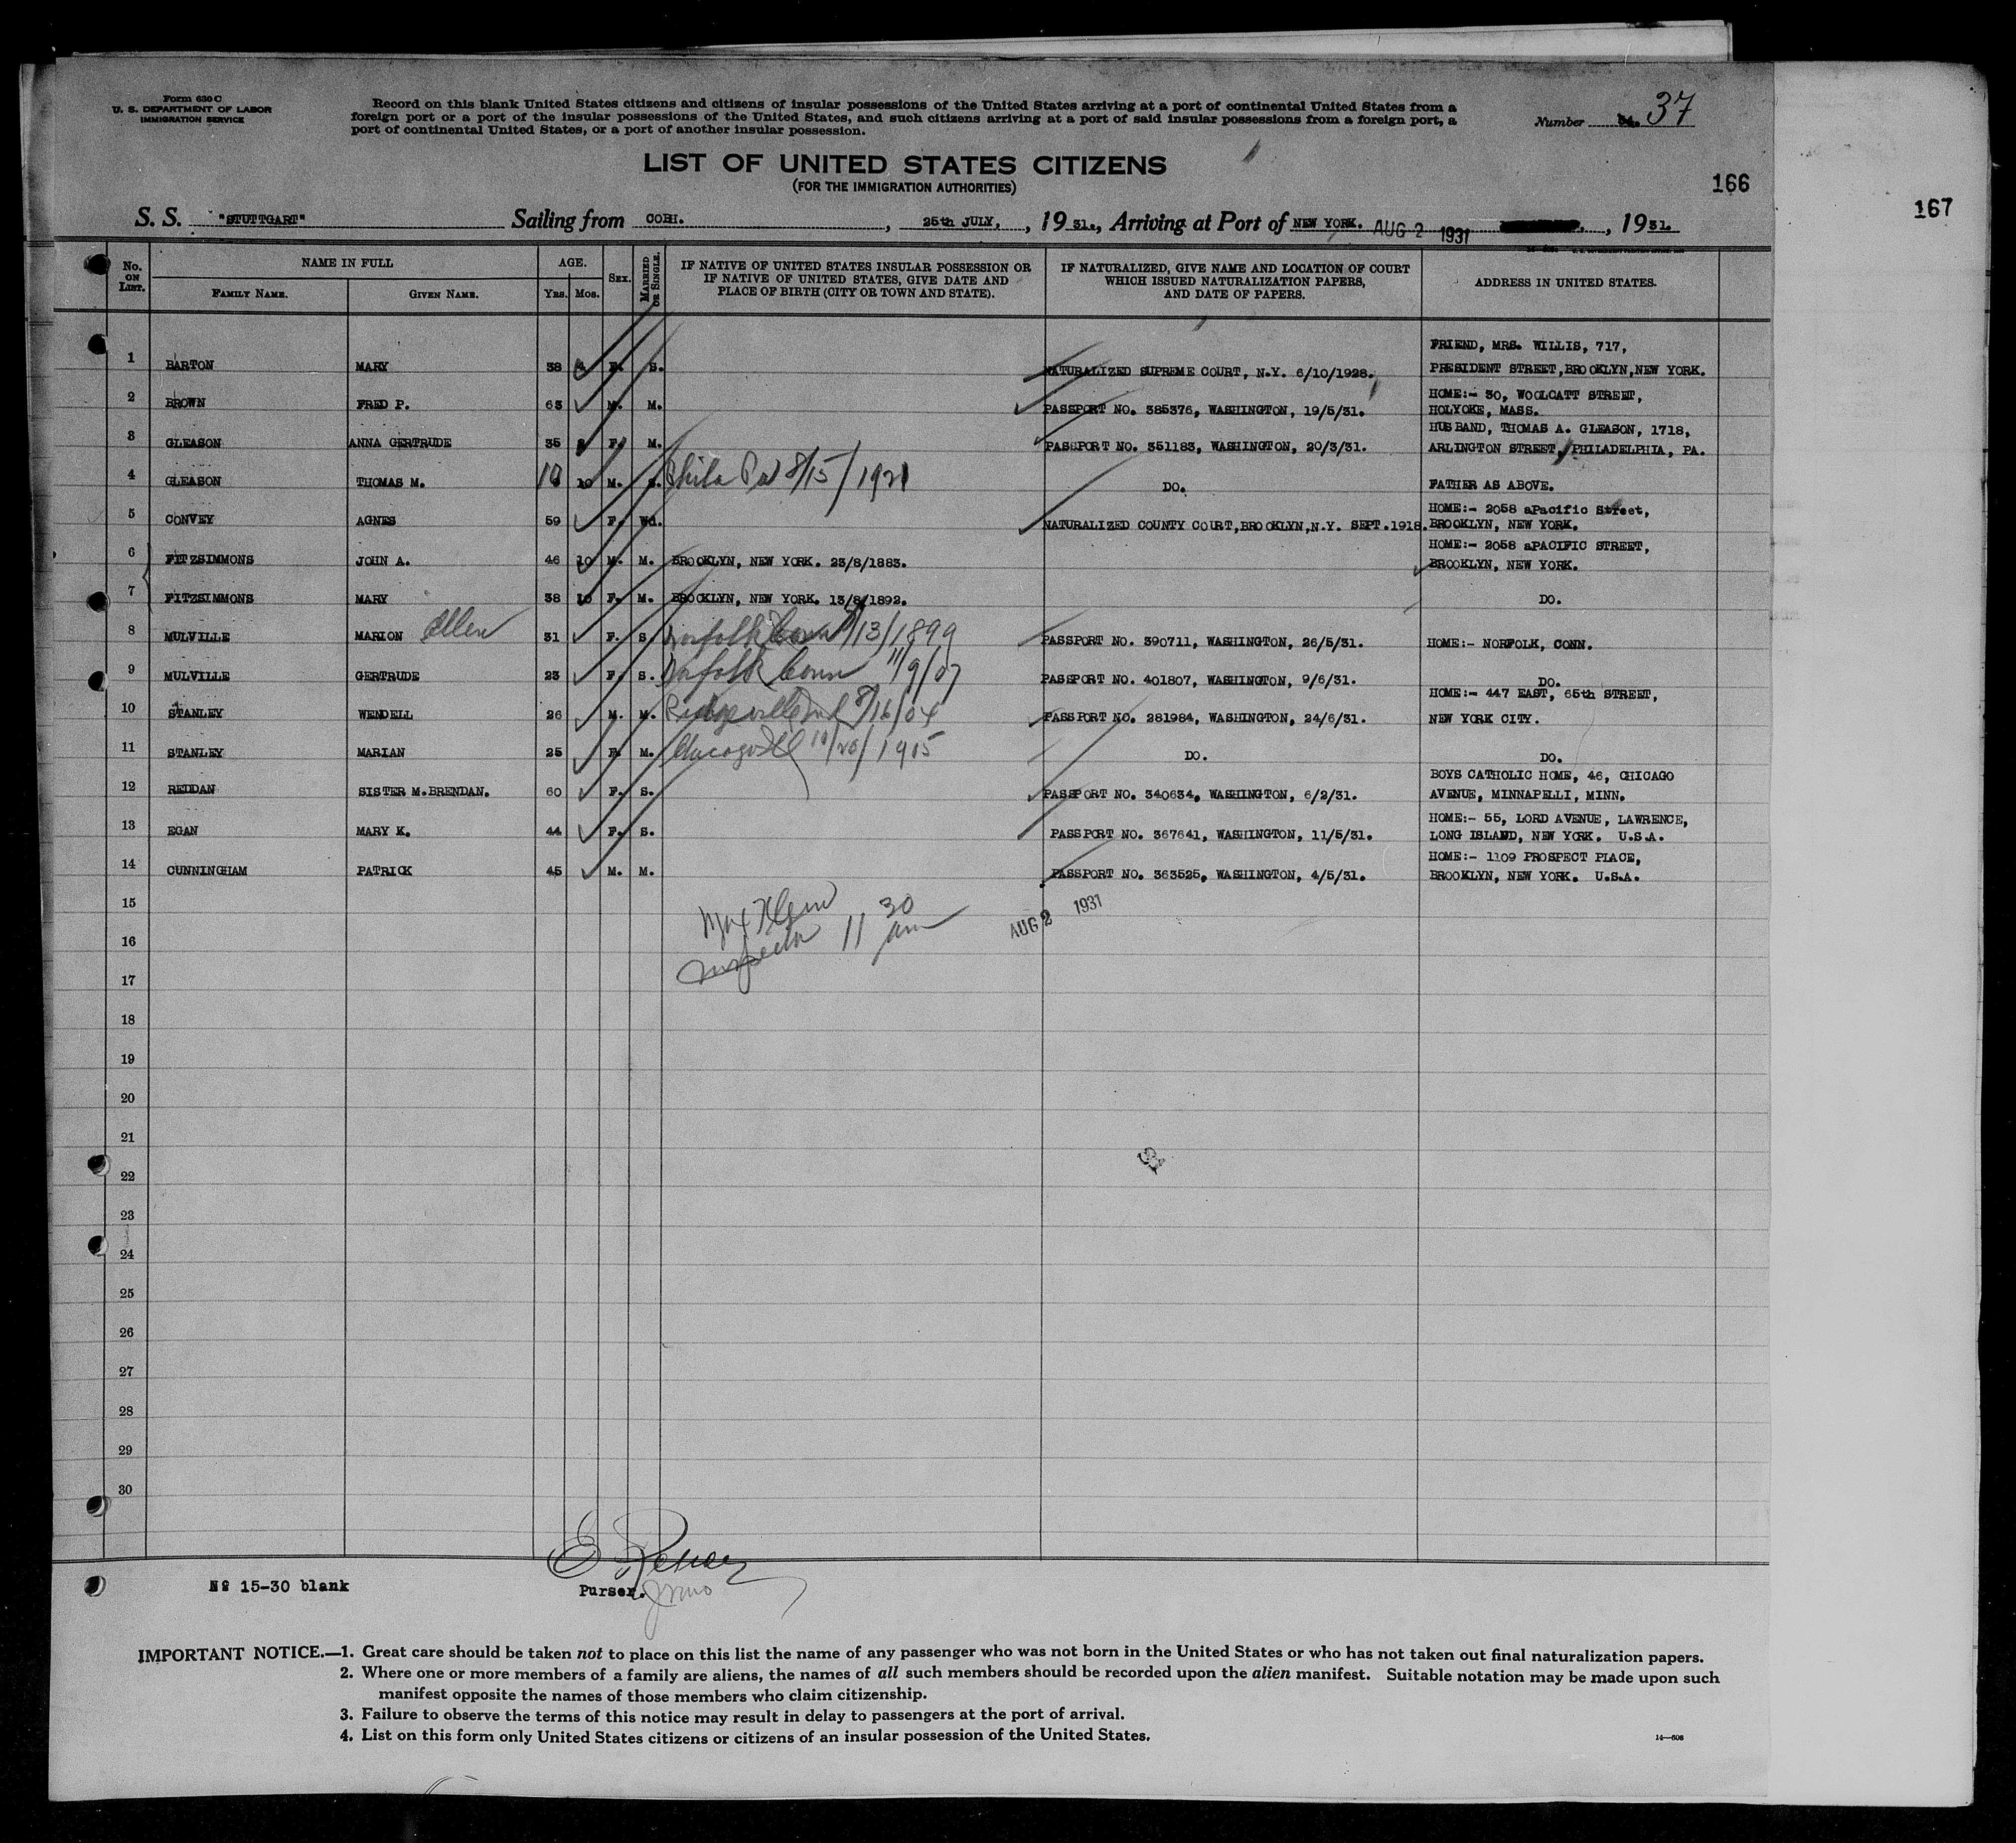 Form 630 C
U. S. DEPARTMENT OF LABOR
IMMIGRATION SERVICE
Record on this blank United States citizens and citizens of insular possessions of the United States arriving at a port of continental United States from a
foreign port or a port of the insular possessions of the United States, and such citizens arriving at a port of said insular possessions from a foreign port, a
port of continental United States, or a port of another insular possession.
Number 37
LIST OF UNITED STATES CITIZENS
(FOR THE IMMIGRATION AUTHORITIES)
166
167
S. S. "STUTTGART" Sailing from COBH. , 25th JULY, , 19 31., Arriving at Port of NEW YORK. AUG 2 1931 , 19 31.
No. ON LIST. NAME IN FULL FAMILY NAME. GIVEN NAME. AGE. YRS. MOS. SEX. MARRIED OR SINGLE.
IF NATIVE OF UNITED STATES INSULAR POSSESSION OR
IF NATIVE OF UNITED STATES, GIVE DATE AND
PLACE OF BIRTH (CITY OR TOWN AND STATE).
IF NATURALIZED, GIVE NAME AND LOCATION OF COURT
WHICH ISSUED NATURALIZATION PAPERS,
AND DATE OF PAPERS.
ADDRESS IN UNITED STATES.
FRIEND, MRS. WILLIS, 717,
1 BARTON MARY 38 F. S. NATURALIZED SUPREME COURT, N.Y. 6/10/1928. PRESIDENT STREET,BROOKLYN,NEW YORK.
HOME:- 30, WOOLCATT STREET,
2 BROWN FRED P. 63 M. M. PASSPORT NO. 385376, WASHINGTON, 19/5/31. HOLYOKE, MASS.
HUSBAND, THOMAS A. GLEASON, 1718,
3 GLEASON ANNA GERTRUDE 35 F. M. PASSPORT NO. 351183, WASHINGTON, 20/3/31. ARLINGTON STREET, PHILADELPHIA, PA.
4 GLEASON THOMAS M. 10 M. S. Phila Pa 8/15/1921 DO. FATHER AS ABOVE.
HOME:- 2058 aPacific Street,
5 CONVEY AGNES 59 F. Wd. NATURALIZED COUNTY COURT,BROOKLYN,N.Y. SEPT.1918. BROOKLYN, NEW YORK.
HOME:- 2058 aPACIFIC STREET,
6 FITZSIMMONS JOHN A. 46 10 M. M. BROOKLYN, NEW YORK. 23/8/1883. BROOKLYN, NEW YORK.
7 FITZSIMMONS MARY 38 10 F. M. BROOKLYN, NEW YORK. 13/8/1892. DO.
8 MULVILLE MARION Ellen 31 F. S. Norfolk Conn /13/1899 PASSPORT NO. 390711, WASHINGTON, 26/5/31. HOME:- NORFOLK, CONN.
9 MULVILLE GERTRUDE 23 F. S. Norfolk Conn 11/9/07 PASSPORT NO. 401807, WASHINGTON, 9/6/31. DO.
HOME:- 447 EAST, 65th STREET,
10 STANLEY WENDELL 26 M. M. Ridgeville Ind 8/16/04 PASSPORT NO. 281984, WASHINGTON, 24/6/31. NEW YORK CITY.
11 STANLEY MARIAN 25 F. M. Chicago Ill 10/20/1905 DO. DO.
BOYS CATHOLIC HOME, 46, CHICAGO
12 REDDAN SISTER M.BRENDAN. 60 F. S. PASSPORT NO. 340634, WASHINGTON, 6/2/31. AVENUE, MINNAPELLI, MINN.
HOME:- 55, LORD AVENUE, LAWRENCE,
13 EGAN MARY K. 44 F. S. PASSPORT NO. 367641, WASHINGTON, 11/5/31. LONG ISLAND, NEW YORK. U.S.A.
HOME:- 1109 PROSPECT PLACE,
14 CUNNINGHAM PATRICK 45 M. M. PASSPORT NO. 363525, WASHINGTON, 4/5/31. BROOKLYN, NEW YORK. U.S.A.
15
Inspector 11 30 am AUG 2 1931
16
17
18
19
20
21
22
23
24
25
26
27
28
29
30
Nº 15-30 blank
Purser.
IMPORTANT NOTICE.—1. Great care should be taken not to place on this list the name of any passenger who was not born in the United States or who has not taken out final naturalization papers.
2. Where one or more members of a family are aliens, the names of all such members should be recorded upon the alien manifest. Suitable notation may be made upon such
manifest opposite the names of those members who claim citizenship.
3. Failure to observe the terms of this notice may result in delay to passengers at the port of arrival.
4. List on this form only United States citizens or citizens of an insular possession of the United States.
14—608